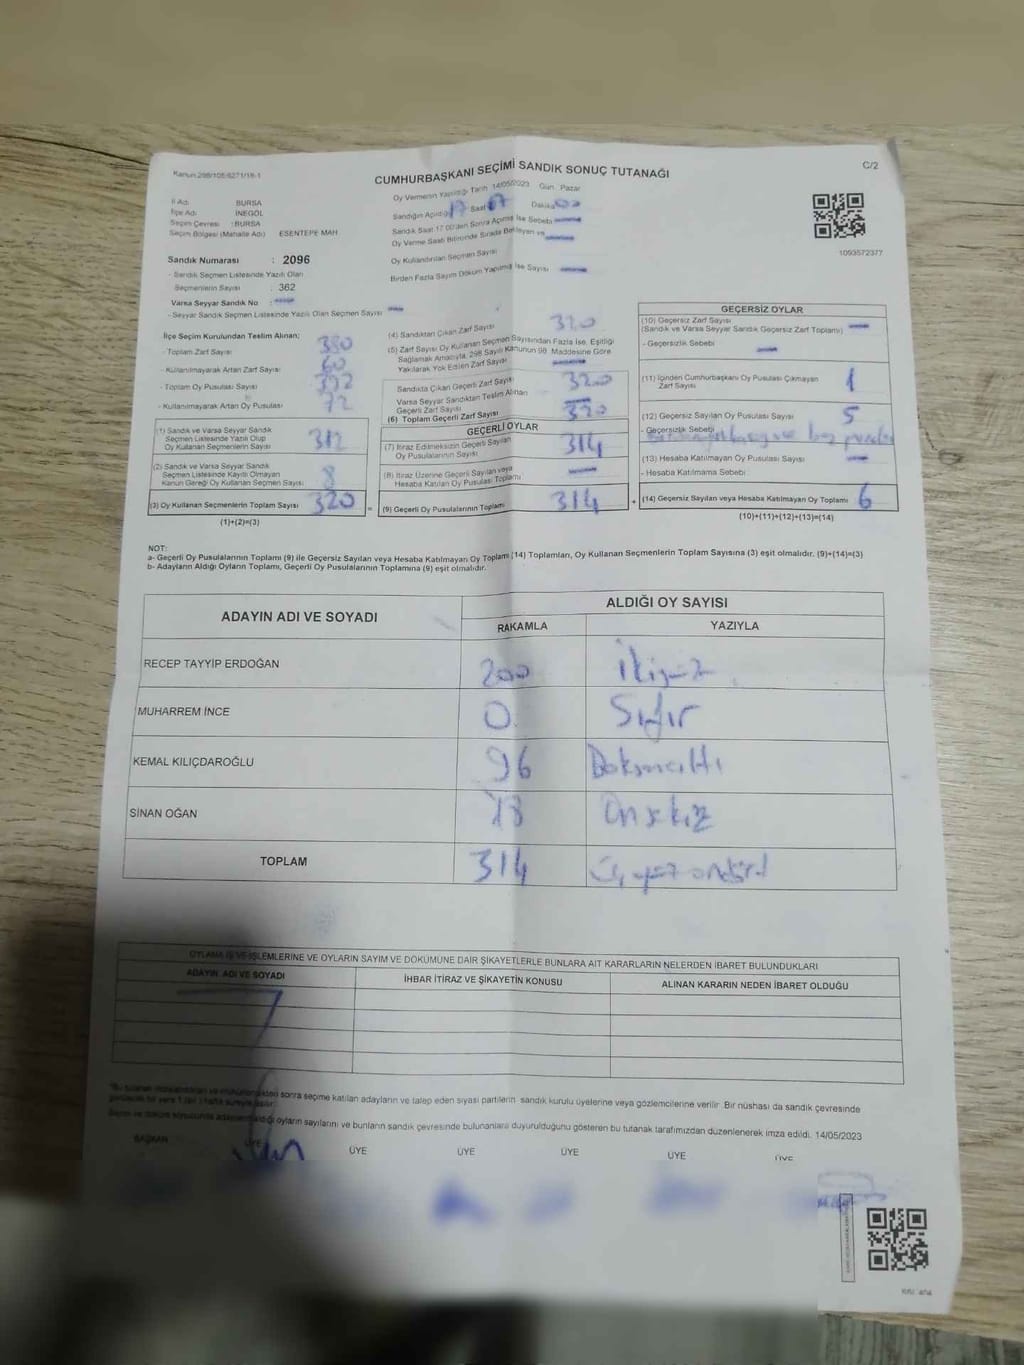 Kanun 298/105/6271/18-1
C/2
CUMHURBAŞKANI SEÇİMİ SANDIK SONUÇ TUTANAĞI
İl Adı BURSA
İlçe Adı İNEGÖL
Seçim Çevresi : BURSA
Seçim Bölgesi (Mahalle Adı) ESENTEPE MAH
Sandık Numarası : 2096
- Sandık Seçmen Listesinde Yazılı Olan
Seçmenlerin Sayısı : 362
Varsa Seyyar Sandık No :
- Seyyar Sandık Seçmen Listesinde Yazılı Olan Seçmen Sayısı
Oy Vermenin Yapıldığı Tarih 14/05/2023 Gün Pazar
Sandığın Açıldığı 17 Saat Dakika
Sandık Saat 17 00'den Sonra Açılmış İse Sebebi
Oy Verme Saati Bitiminde Sırada Bekleyen ve
Oy Kullandırılan Seçmen Sayısı
Birden Fazla Sayım Döküm Yapılmış İse Sayısı
1093572377
İlçe Seçim Kurulundan Teslim Alınan;
- Toplam Zarf Sayısı 380
- Kullanılmayarak Artan Zarf Sayısı 60
- Toplam Oy Pusulası Sayısı 392
- Kullanılmayarak Artan Oy Pusulası 72
(1) Sandık ve Varsa Seyyar Sandık
Seçmen Listesinde Yazılı Olup
Oy Kullanan Seçmenlerin Sayısı 312
(2) Sandık ve Varsa Seyyar Sandık
Seçmen Listesinde Kayıtlı Olmayan
Kanun Gereği Oy Kullanan Seçmen Sayısı 8
(3) Oy Kullanan Seçmenlerin Toplam Sayısı 320
(1)+(2)=(3)
(4) Sandıktan Çıkan Zarf Sayısı 320
(5) Zarf Sayısı Oy Kullanan Seçmen Sayısından Fazla İse, Eşitliği
Sağlamak Amacıyla, 298 Sayılı Kanunun 98. Maddesine Göre
Yakılarak Yok Edilen Zarf Sayısı
Sandıkta Çıkan Geçerli Zarf Sayısı 320
Varsa Seyyar Sandıktan Teslim Alınan
Geçerli Zarf Sayısı
(6) Toplam Geçerli Zarf Sayısı 320
GEÇERLİ OYLAR
(7) İtiraz Edilmeksizin Geçerli Sayılan
Oy Pusulalarının Sayısı 314
(8) İtiraz Üzerine Geçerli Sayılan veya
Hesaba Katılan Oy Pusulası Toplamı
(9) Geçerli Oy Pusulalarının Toplamı 314
GEÇERSİZ OYLAR
(10) Geçersiz Zarf Sayısı
(Sandık ve Varsa Seyyar Sandık Geçersiz Zarf Toplamı)
- Geçersizlik Sebebi
(11) İçinden Cumhurbaşkanı Oy Pusulası Çıkmayan
Zarf Sayısı 1
(12) Geçersiz Sayılan Oy Pusulası Sayısı 5
- Geçersizlik Sebebi
(13) Hesaba Katılmayan Oy Pusulası Sayısı
- Hesaba Katılmama Sebebi
(14) Geçersiz Sayılan veya Hesaba Katılmayan Oy Toplamı 6
(10)+(11)+(12)+(13)=(14)
NOT:
a- Geçerli Oy Pusulalarının Toplamı (9) ile Geçersiz Sayılan veya Hesaba Katılmayan Oy Toplamı (14) Toplamları, Oy Kullanan Seçmenlerin Toplam Sayısına (3) eşit olmalıdır. (9)+(14)=(3)
b- Adayların Aldığı Oyların Toplamı, Geçerli Oy Pusulalarının Toplamına (9) eşit olmalıdır.
ADAYIN ADI VE SOYADI ALDIĞI OY SAYISI
RAKAMLA YAZIYLA
RECEP TAYYİP ERDOĞAN 200 İkiyüz
MUHARREM İNCE 0 Sıfır
KEMAL KILIÇDAROĞLU 96 Doksanaltı
SİNAN OĞAN 18 Onsekiz
TOPLAM 314 Üçyüzondört
OYLAMA İŞ VE İŞLEMLERİNE VE OYLARIN SAYIM VE DÖKÜMÜNE DAİR ŞİKAYETLERLE BUNLARA AİT KARARLARIN NELERDEN İBARET BULUNDUKLARI
ADAYIN ADI VE SOYADI İHBAR İTİRAZ VE ŞİKAYETİN KONUSU ALINAN KARARIN NEDEN İBARET OLDUĞU
sonra seçime katılan adayların ve talep eden siyasi partilerin sandık kurulu üyelerine veya gözlemcilerine verilir. Bir nüshası da sandık çevresinde
oyların sayılarını ve bunların sandık çevresinde bulunanlara duyurulduğunu gösteren bu tutanak tarafımızdan düzenlenerek imza edildi. 14/05/2023
BAŞKAN ÜYE ÜYE ÜYE ÜYE ÜYE ÜYE